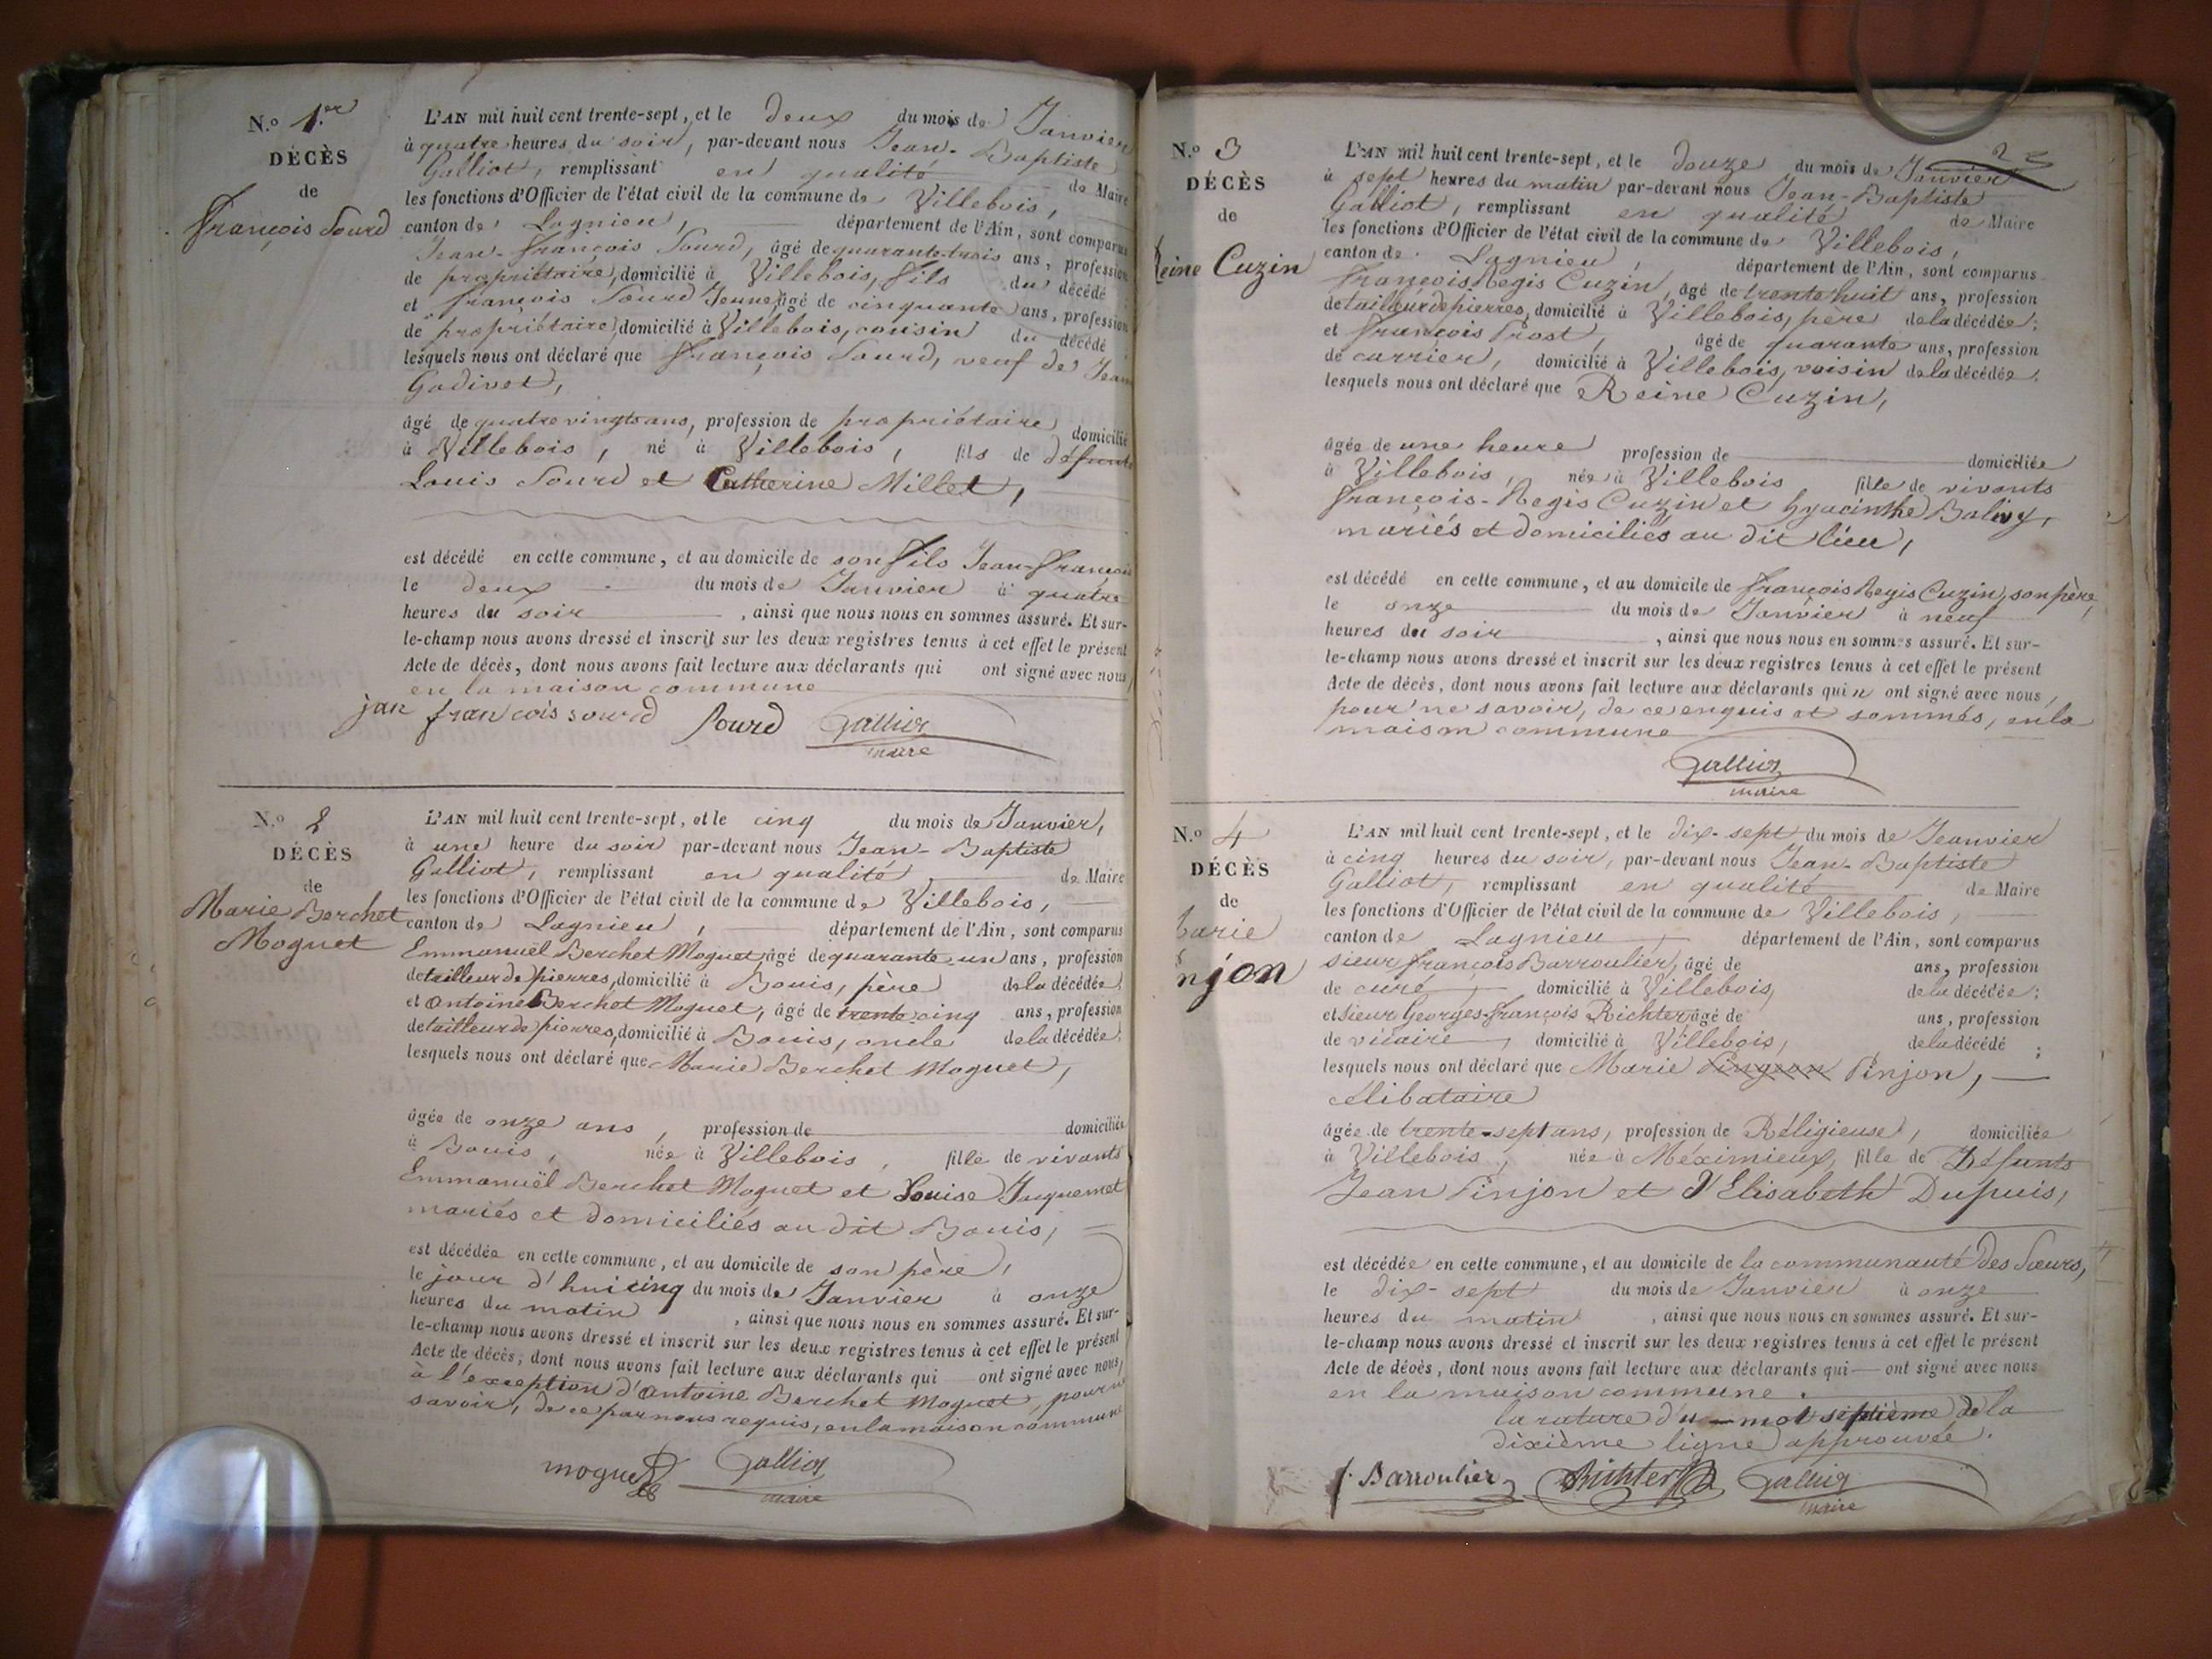 N.o 1.er
DÉCÈS
de
François Sourd
L'AN mil huit cent trente-sept, et le deux du mois de Janvier
à quatre heures du soir, par-devant nous Jean-Baptiste
Galliot, remplissant en qualité de Maire
les fonctions d'Officier de l'état civil de la commune de Villebois,
canton de Lagnieu, département de l'Ain, sont comparus
Jean-François Sourd, âgé de quarante-trois ans, profession
de propriétaire, domicilié à Villebois, fils du décédé
et François Sourd Jeune, âgé de cinquante ans, profession
de propriétaire, domicilié à Villebois, cousin du décédé
lesquels nous ont déclaré que François Sourd, veuf de Jean
Godivet,
âgé de quatre vingts ans, profession de propriétaire domicilié
à Villebois, né à Villebois, fils de défunts
Louis Sourd et Catherine Millet,
est décédé en cette commune, et au domicile de son fils Jean-François
le deux du mois de Janvier à quatre
heures du soir, ainsi que nous nous en sommes assuré. Et sur-
le-champ nous avons dressé et inscrit sur les deux registres tenus à cet effet le présent
Acte de décès, dont nous avons fait lecture aux déclarants qui ont signé avec nous,
en la maison commune
jan francois sourd Sourd Galliot
maire
N.o 2
DÉCÈS
de
Marie Berchet
Moguet
L'AN mil huit cent trente-sept, et le cinq du mois de Janvier,
à une heure du soir par-devant nous Jean-Baptiste
Galliot, remplissant en qualité de Maire
les fonctions d'Officier de l'état civil de la commune de Villebois,
canton de Lagnieu, département de l'Ain, sont comparus
Emmanuël Berchet Moguet, âgé de quarante-un ans, profession
de tailleur de pierres, domicilié à Bouis, père de la décédée;
et Antoine Berchet Moguet, âgé de trente-cinq ans, profession
de tailleur de pierres, domicilié à Bouis, oncle de la décédée;
lesquels nous ont déclaré que Marie Berchet Moguet,
âgée de onze ans, profession de domiciliée
à Bouis, née à Villebois, fille de vivants
Emmanuël Berchet Moguet et Louise Jacquemet
mariés et domiciliés au dit Bouis,
est décédée en cette commune, et au domicile de son père,
le jour d'hui cinq du mois de Janvier à onze
heures du matin, ainsi que nous nous en sommes assuré. Et sur-
le-champ nous avons dressé et inscrit sur les deux registres tenus à cet effet le présent
Acte de décès, dont nous avons fait lecture aux déclarants qui ont signé avec nous,
à l'exception d'Antoine Berchet Moguet, pour ne
savoir, de ce par nous requis, en la maison commune
moguet Galliot
maire
2
N.o 3
DÉCÈS
de
Reine Cuzin
L'AN mil huit cent trente-sept, et le douze du mois de Janvier
à sept heures du matin par-devant nous Jean-Baptiste
Galliot, remplissant en qualité de Maire
les fonctions d'Officier de l'état civil de la commune de Villebois,
canton de Lagnieu, département de l'Ain, sont comparus
François Regis Cuzin, âgé de trente huit ans, profession
de tailleur de pierres, domicilié à Villebois, père de la décédée;
et François Prost, âgé de quarante ans, profession
de carrier, domicilié à Villebois, voisin de la décédée.
lesquels nous ont déclaré que Reine Cuzin,
âgée de une heure profession de domiciliée
à Villebois, née à Villebois fille de vivants
François-Regis Cuzin et hyacinthe Balivy,
mariés et domiciliés au dit lieu,
est décédé en cette commune, et au domicile de François Regis Cuzin, son père,
le onze du mois de Janvier à neuf
heures du soir, ainsi que nous nous en sommes assuré. Et sur-
le-champ nous avons dressé et inscrit sur les deux registres tenus à cet effet le présent
Acte de décès, dont nous avons fait lecture aux déclarants qui n ont signé avec nous,
pour ne savoir, de ce enquis et sommés, en la
maison commune
Galliot
maire
N.o 4
DÉCÈS
de
Marie
njon
L'AN mil huit cent trente-sept, et le dix-sept du mois de Jeanvier
à cinq heures du soir, par-devant nous Jean-Baptiste
Galliot, remplissant en qualité de Maire
les fonctions d'Officier de l'état civil de la commune de Villebois,
canton de Lagnieu, département de l'Ain, sont comparus
sieur François Barroulier, âgé de ans, profession
de curé, domicilié à Villebois, de la décédée;
et sieur Georges-François Richter âgé de ans, profession
de vicaire, domicilié à Villebois, de la décédé;
lesquels nous ont déclaré que Marie Pingeon Pinjon,
célibataire
âgée de trente-sept ans, profession de Réligieuse, domiciliée
à Villebois, née à Méximieux, fille de Défunts
Jean Pinjon et d'Elisabeth Dupuis,
est décédée en cette commune, et au domicile de la communauté des Sœurs,
le dix-sept du mois de Janvier à onze
heures du matin, ainsi que nous nous en sommes assuré. Et sur-
le-champ nous avons dressé et inscrit sur les deux registres tenus à cet effet le présent
Acte de décès, dont nous avons fait lecture aux déclarants qui ont signé avec nous
en la maison commune.
la rature d'u mot septième de la
dixième ligne approuvée.
f. Barroulier Richter Galliot
maire